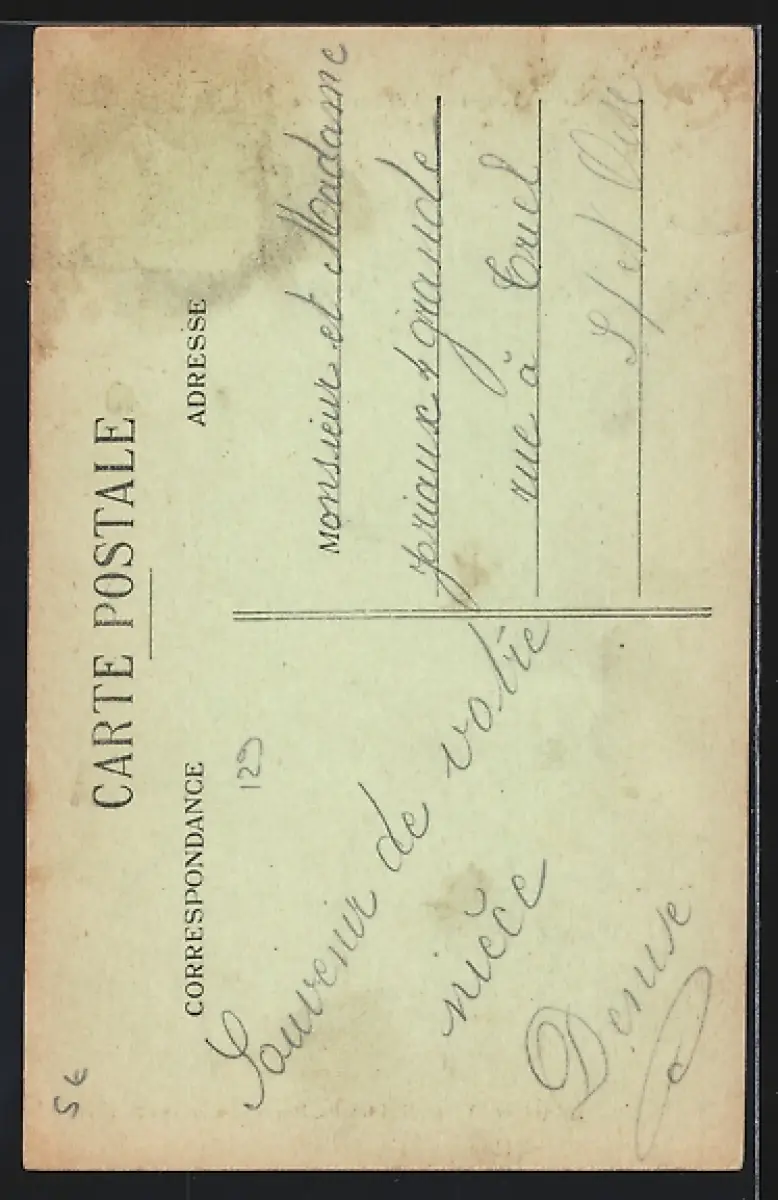 CARTE POSTALE
CORRESPONDANCE
ADRESSE
129
Souvenir de votre
nièce
Denise
Monsieur et Madame
priaux grande
rue à Triel
S/et Oise
5 €